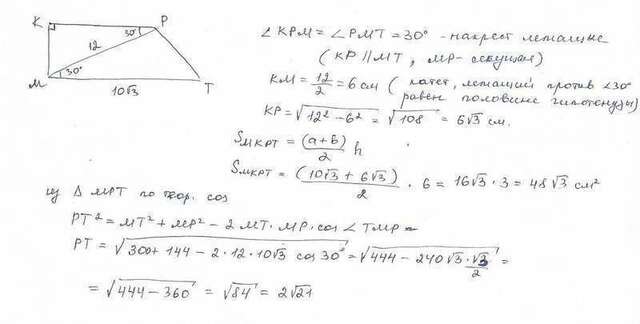 K P
30°
12
30°
M T
10√3
∠KPM = ∠PMT = 30° - накрест лежащие
(KP || MT, MP - секущая)
KM = 12/2 = 6 см (катет, лежащий против ∠30°
равен половине гипотенузы)
KP = √(12² - 6²) = √108 = 6√3 см.
S_MKPT = (a+b)/2 h
S_MKPT = (10√3 + 6√3)/2 · 6 = 16√3 · 3 = 48√3 см²
из Δ MPT по теор. cos
PT² = MT² + MP² - 2 MT · MP · cos ∠TMP =
PT = √(300 + 144 - 2 · 12 · 10√3 cos 30°) = √(444 - 240√3 · √3/2) =
= √(444 - 360) = √84 = 2√21